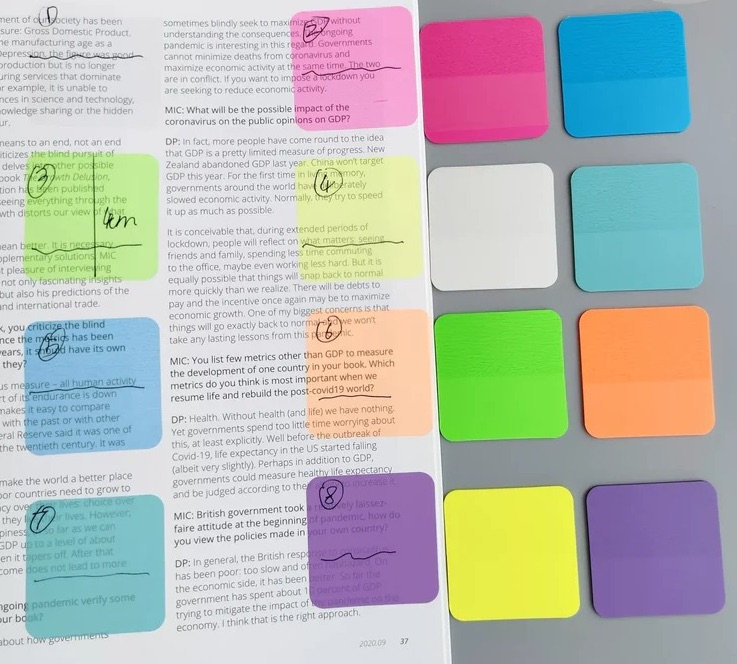 ①
ment of our society has been
sure: Gross Domestic Product.
he manufacturing age as a
Depression, the figure was good
production but is no longer
uring services that dominate
or example, it is unable to
nces in science and technology,
owledge sharing or the hidden
ur.
means to an end, not an end
iticizes the blind pursuit of
delves into other possible
book The Growth Delusion,
tion has been published
seeing everything through the
wth distorts our view of what
③
4cm
ean better. It is necessary
plementary solutions. MIC
t pleasure of interviewing
not only fascinating insights
but also his predictions of the
and international trade.
k, you criticize the blind
nce the metrics has been
years, it should have its own
they?
⑤
us measure – all human activity
rt of its endurance is down
makes it easy to compare
with the past or with other
eral Reserve said it was one of
the twentieth century. It was
make the world a better place
oor countries need to grow to
cy over their lives: choice over
they live their lives. However,
piness, so far as we can
GDP up to a level of about
en it tapers off. After that
come does not lead to more
⑦
ngoing pandemic verify some
ur book?
about how governments
sometimes blindly seek to maximize GDP without
understanding the consequences. The ongoing
pandemic is interesting in this regard. Governments
cannot minimize deaths from coronavirus and
maximize economic activity at the same time. The two
are in conflict. If you want to impose a lockdown you
are seeking to reduce economic activity.
②
MIC: What will be the possible impact of the
coronavirus on the public opinions on GDP?
DP: In fact, more people have come round to the idea
that GDP is a pretty limited measure of progress. New
Zealand abandoned GDP last year. China won't target
GDP this year. For the first time in living memory,
governments around the world have deliberately
slowed economic activity. Normally, they try to speed
it up as much as possible.
④
It is conceivable that, during extended periods of
lockdown, people will reflect on what matters: seeing
friends and family, spending less time commuting
to the office, maybe even working less hard. But it is
equally possible that things will snap back to normal
more quickly than we realize. There will be debts to
pay and the incentive once again may be to maximize
economic growth. One of my biggest concerns is that
things will go exactly back to normal and we won't
take any lasting lessons from this pandemic.
⑥
MIC: You list few metrics other than GDP to measure
the development of one country in your book. Which
metrics do you think is most important when we
resume life and rebuild the post-covid19 world?
DP: Health. Without health (and life) we have nothing.
Yet governments spend too little time worrying about
this, at least explicitly. Well before the outbreak of
Covid-19, life expectancy in the US started falling
(albeit very slightly). Perhaps in addition to GDP,
governments could measure healthy life expectancy
and be judged according to their ability to increase it.
⑧
MIC: British government took a relatively laissez-
faire attitude at the beginning of pandemic, how do
you view the policies made in your own country?
DP: In general, the British response to
has been poor: too slow and often haphazard. On
the economic side, it has been better. So far the
government has spent about 1 percent of GDP
trying to mitigate the impact of the pandemic on the
economy. I think that is the right approach.
2020.09 37